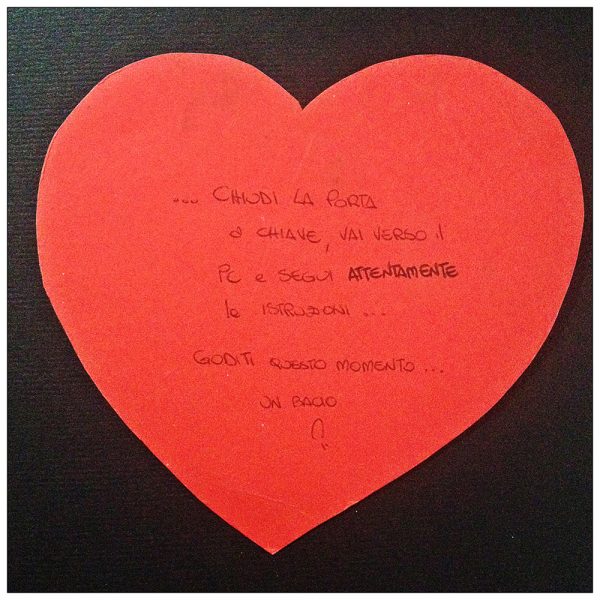 ... CHIUDI LA PORTA
a CHIAVE, VAI VERSO il
PC e SEGUI ATTENTAMENTE
le ISTRUZIONI ...
GODITI QUESTO MOMENTO ...
UN BACIO